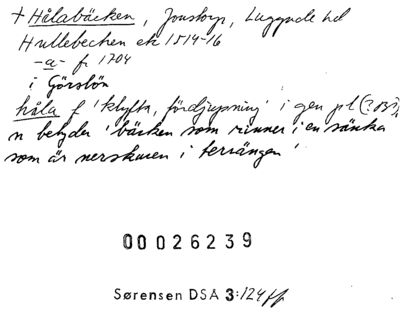 + Hålabäcken, Jonstorp, Luggude hd
Hullebechen ek 1514-16
-a- f 1704
i Görslöv
håla f 'klyfta, fördjupning' i gen pl (? OBS),
n betyder 'bäcken som rinner i en sänka
som är nerskuren i terrängen'
00026239
Sørensen DSA 3:124ff